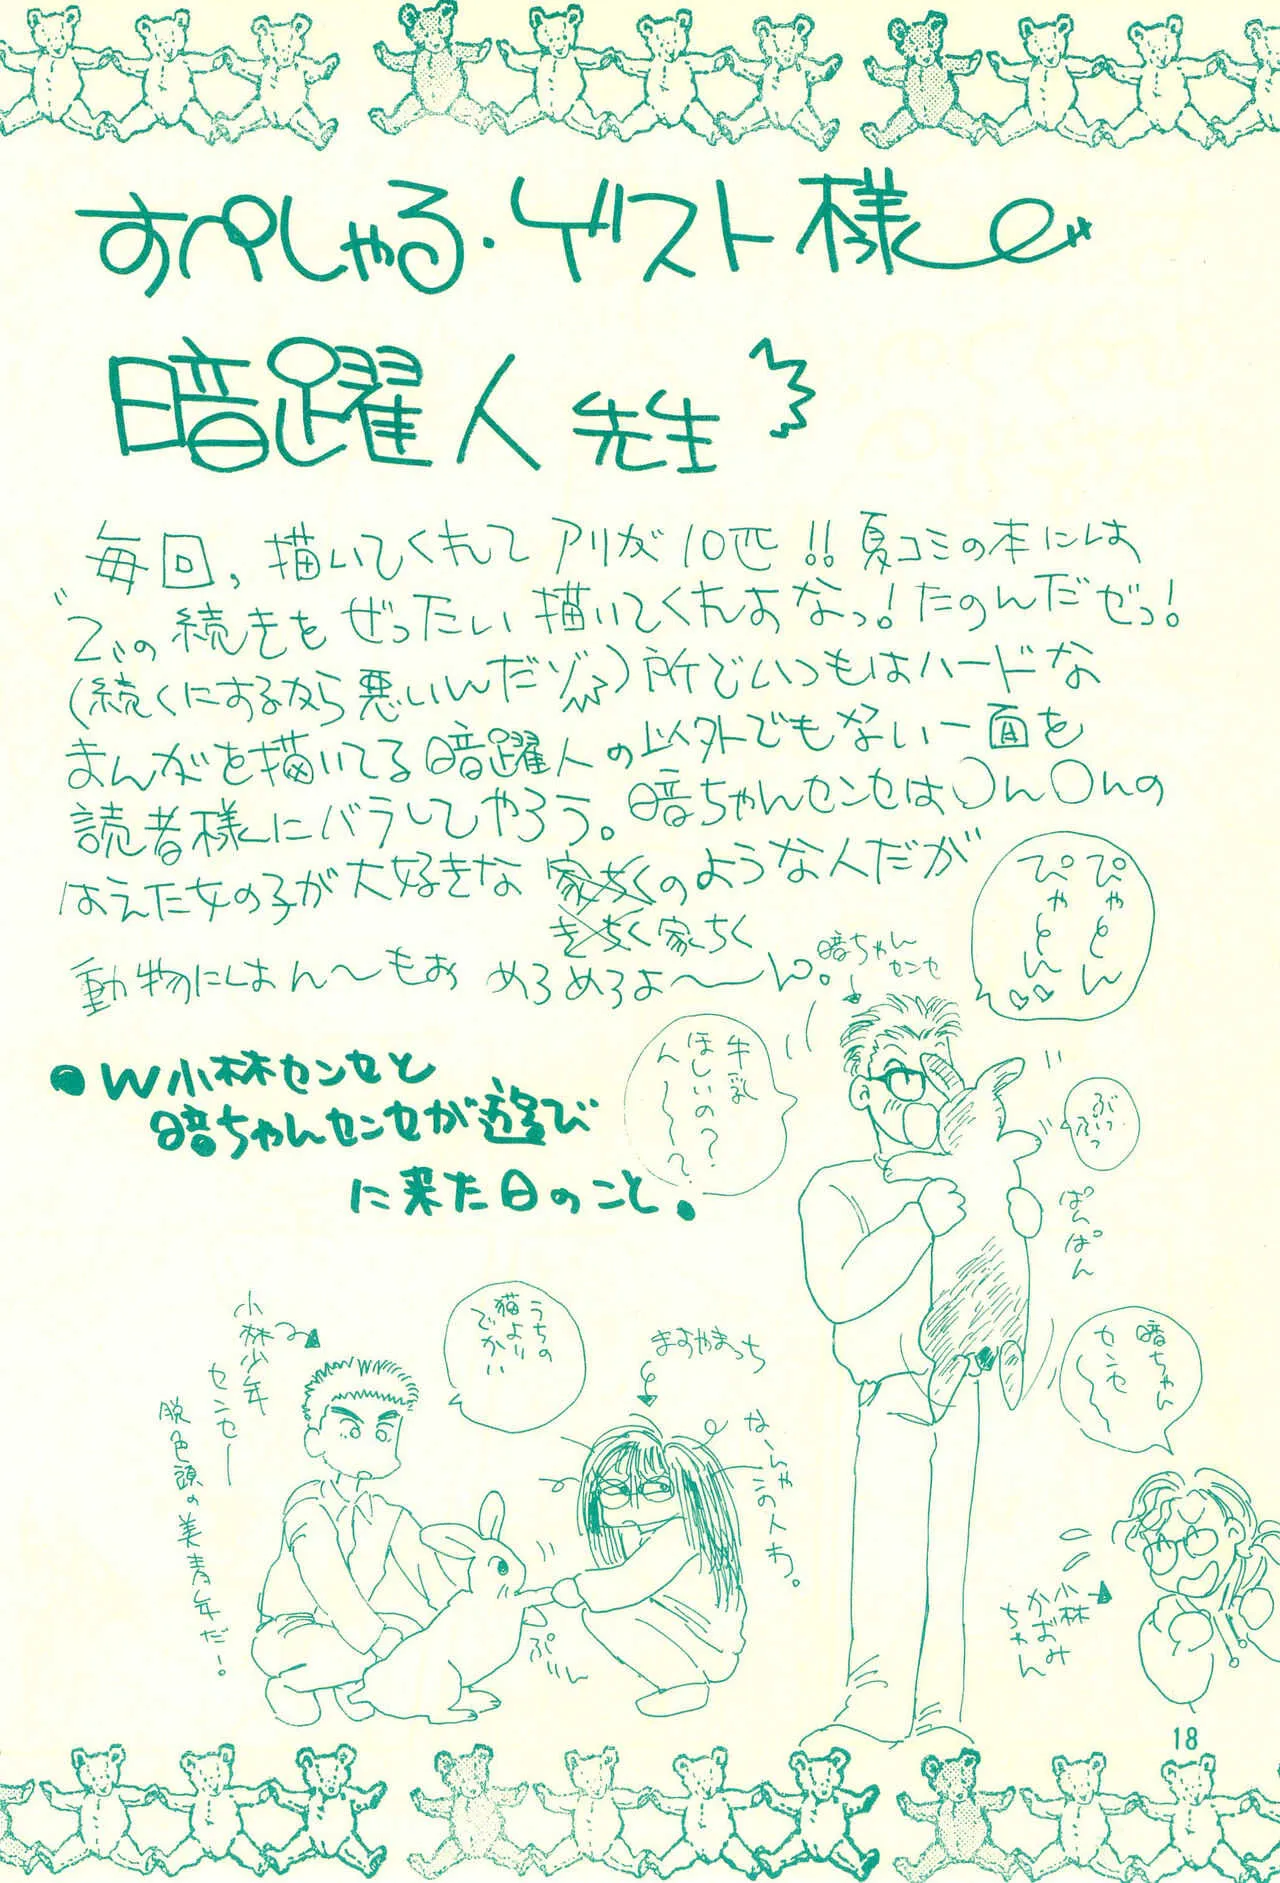 すぺしゃる・ゲスト様
暗躍人先生
毎回、描いてくれてアリが10匹!!夏コミの本には
この続きをぜったい描いてくれよなっ!たのんだぜっ!
(続くにするなら悪いんだゾ)所でいつもはハードな
まんがを描いてる暗躍人の以外でもない一面を
読者様にバラしてやろう。暗ちゃんセンセは〇ん〇んの
はえた女の子が大好きな家ちくのような人だが
きちく家ちく
動物にはん〜もおめろめろよ〜ん。
暗ちゃんセンセ
ぴゃとん
ぴゃとん♡♡
牛乳
ほしいの?
ん〜〜?
ぶっ
ぶっ
ぱんぱん
●W小林センセと
暗ちゃんセンセが遊び
に来た日のこと。
小林少年
センセー
脱色頭の美青年だ!
うちの
猫より
でかい
ますやまっち
な〜んや
この人わ。
ぷいん
暗ちゃん
センセ〜
小林
かおみ
ちゃん
18